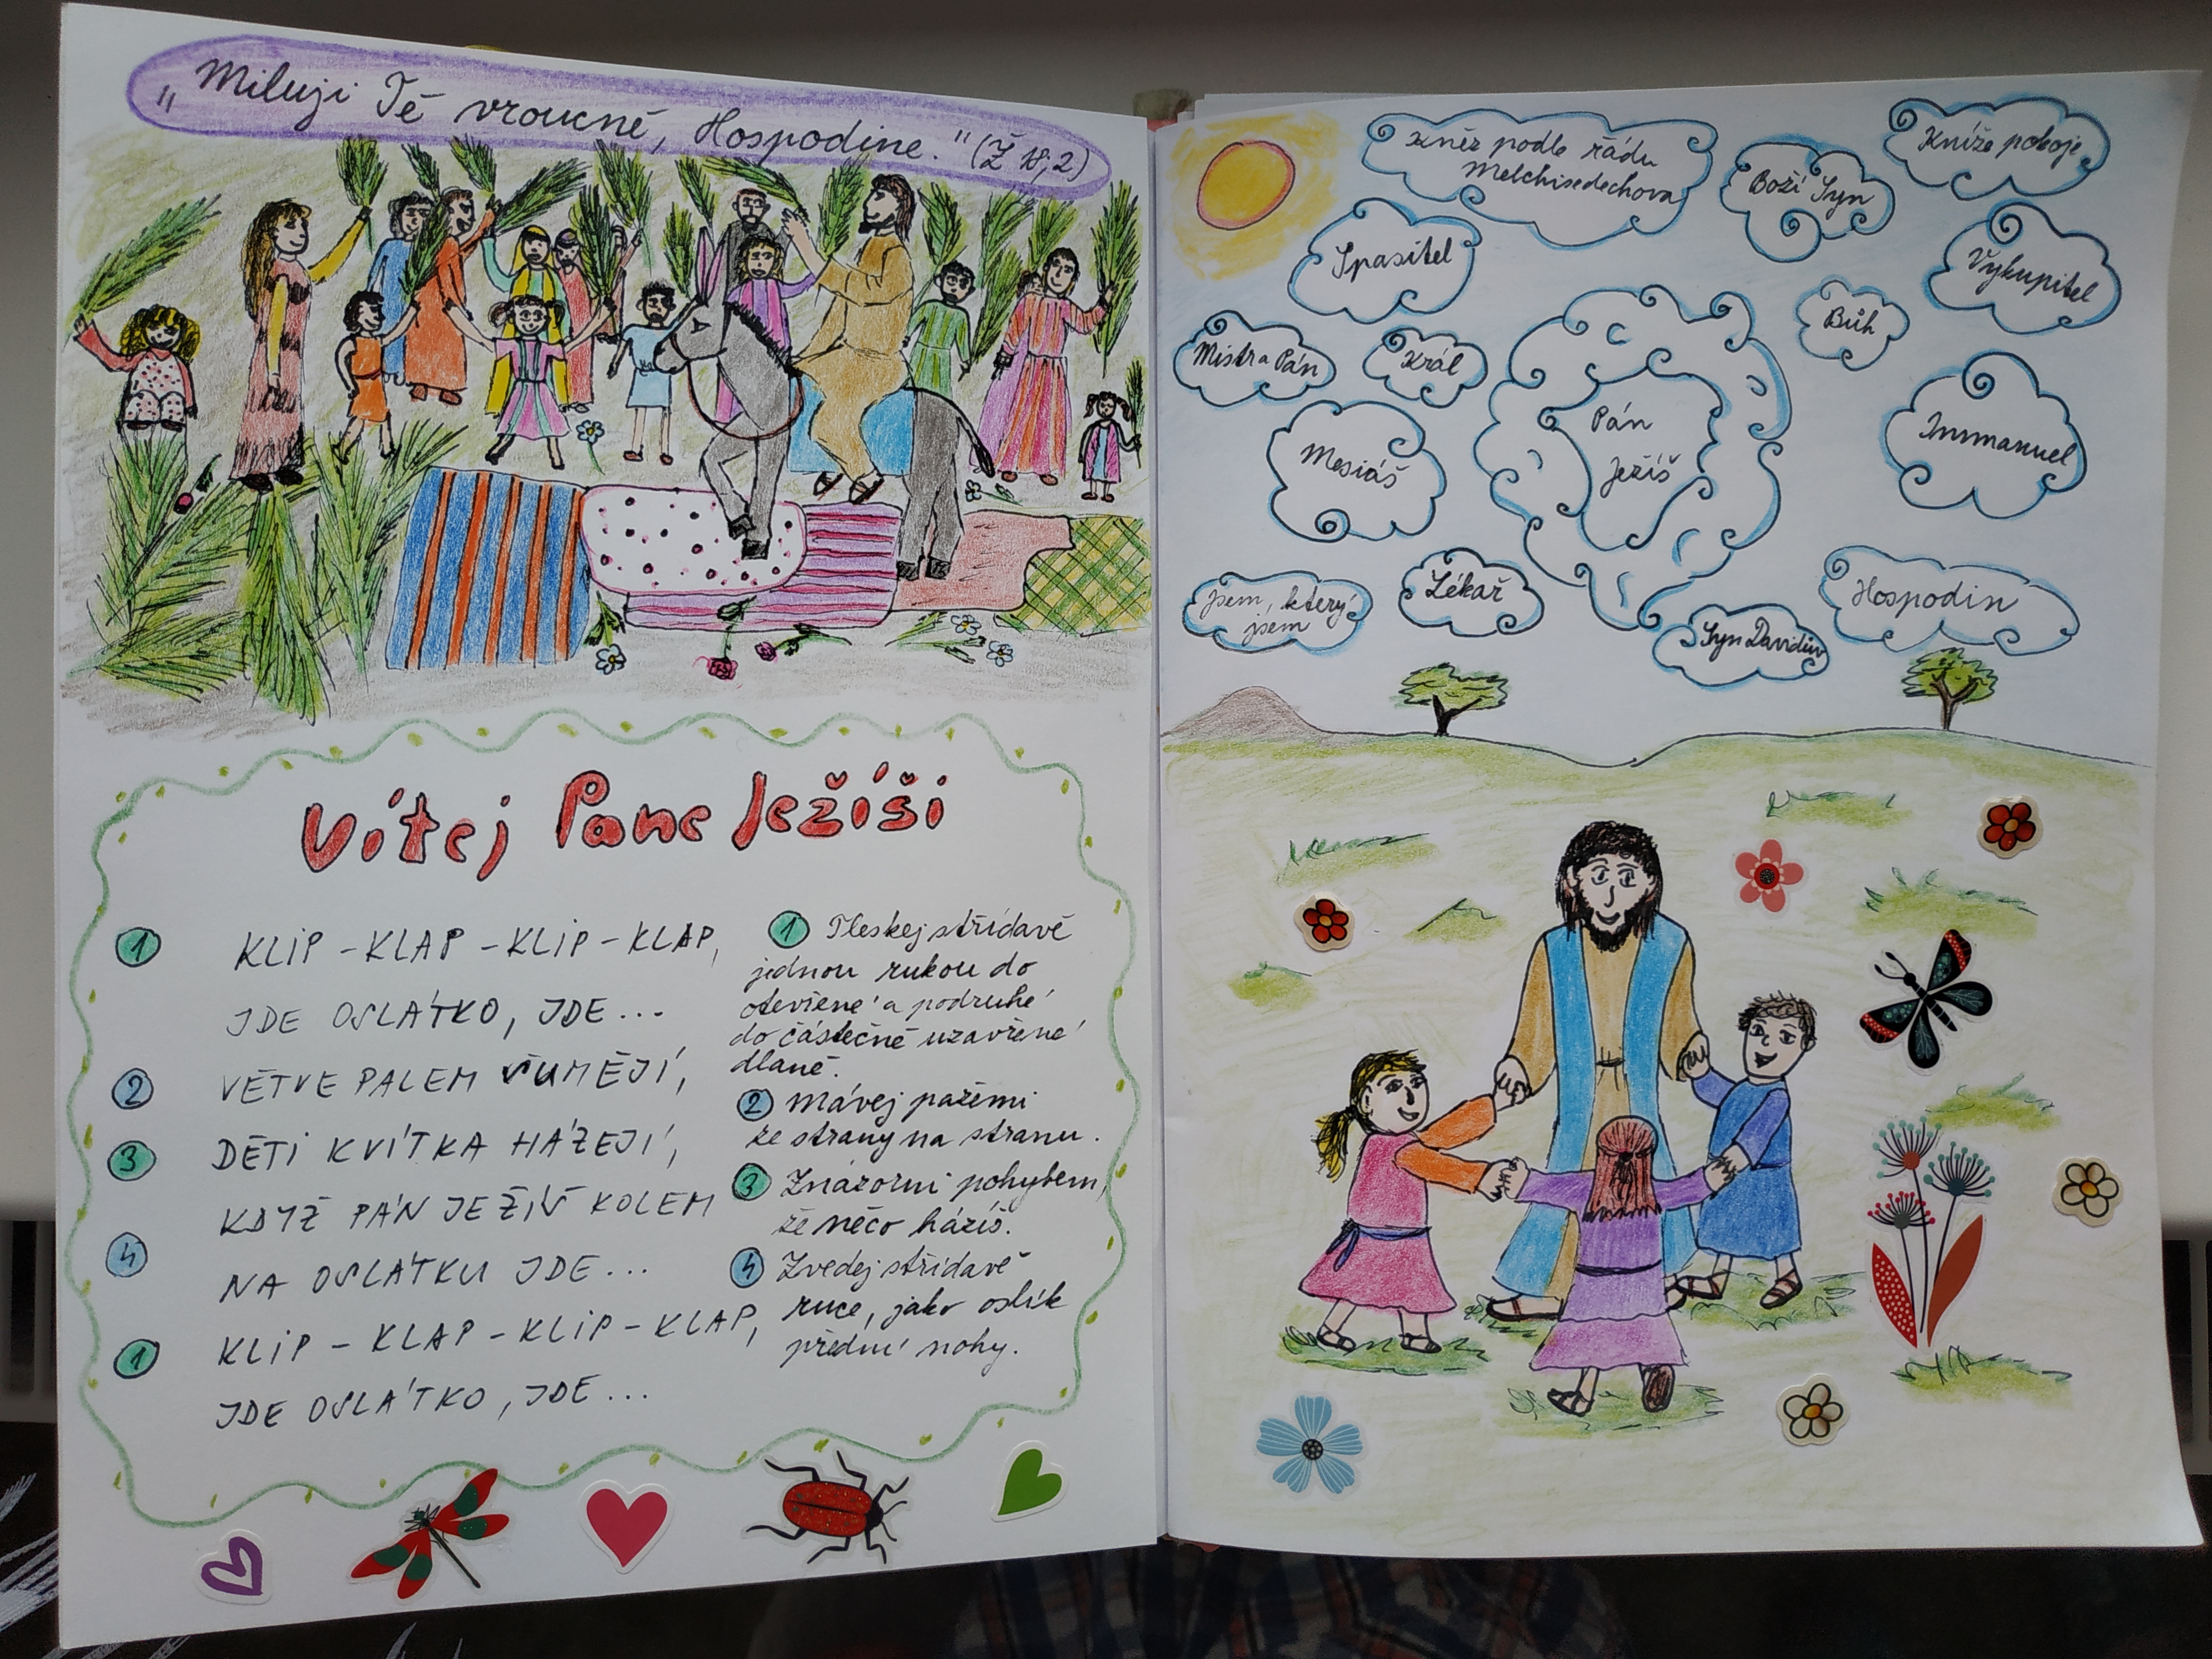 „Miluji Tě vroucně, Hospodine." (Ž 18,2)
Vítej Pane Ježíši
1 KLIP - KLAP - KLIP - KLAP,
JDE OSLÁTKO, JDE...
2 VĚTVE PALEM ŠUMĚJÍ,
3 DĚTI KVÍTKA HÁZEJÍ,
KDYŽ PÁN JEŽÍŠ KOLEM
4 NA OSLÁTKU JDE...
1 KLIP - KLAP - KLIP - KLAP,
JDE OSLÁTKO, JDE...
1 Tleskej střídavě
jednou rukou do
otevřené a podruhé
do částečně uzavřené
dlaně.
2 Mávej pažemi
ze strany na stranu.
3 Znázorni pohybem,
že něco házíš.
4 Zvedej střídavě
ruce, jako oslík
přední nohy.
Kněz podle řádu
Melchisedechova
Boží Syn
Kníže pokoje
Spasitel
Vykupitel
Bůh
Mistr a Pán
Král
Pán
Ježíš
Mesiáš
Immanuel
Jsem, který
jsem
Lékař
Syn Davidův
Hospodin